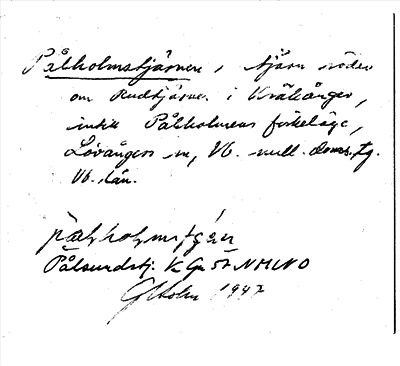 Pålholmstjärnen, tjärn söder
om Rudtjärnen i Kräkånger,
intill Pålholmens fiskeläge,
Lövångers sn, Vb. mell. doms. tg.
Vb. län.
Pålsundstj. K Gr 57 NMLNO
G Holm 1947